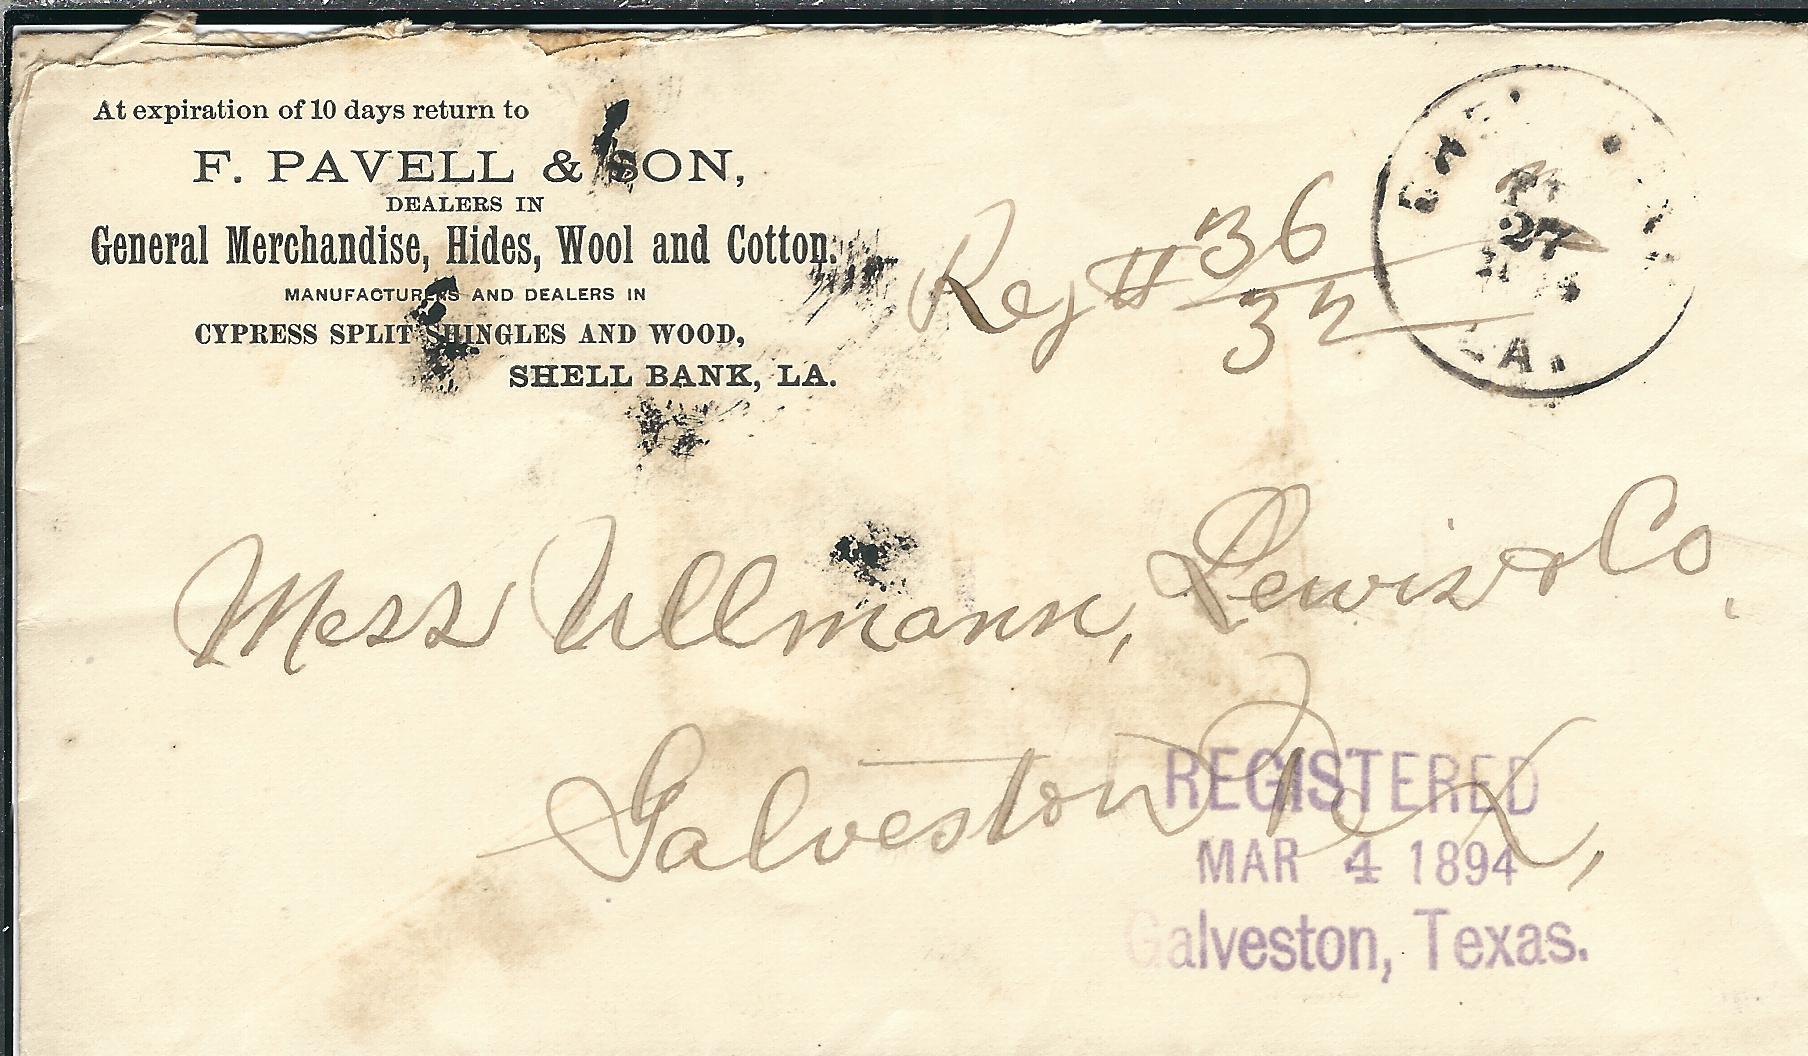 At expiration of 10 days return to
F. PAVELL & SON,
DEALERS IN
General Merchandise, Hides, Wool and Cotton.
MANUFACTURERS AND DEALERS IN
CYPRESS SPLIT SHINGLES AND WOOD,
SHELL BANK, LA.
Reg # 36
32
27
LA.
Mess Ullmann, Lewis & Co.
Galveston Tex,
REGISTERED
MAR 4 1894
Galveston, Texas.